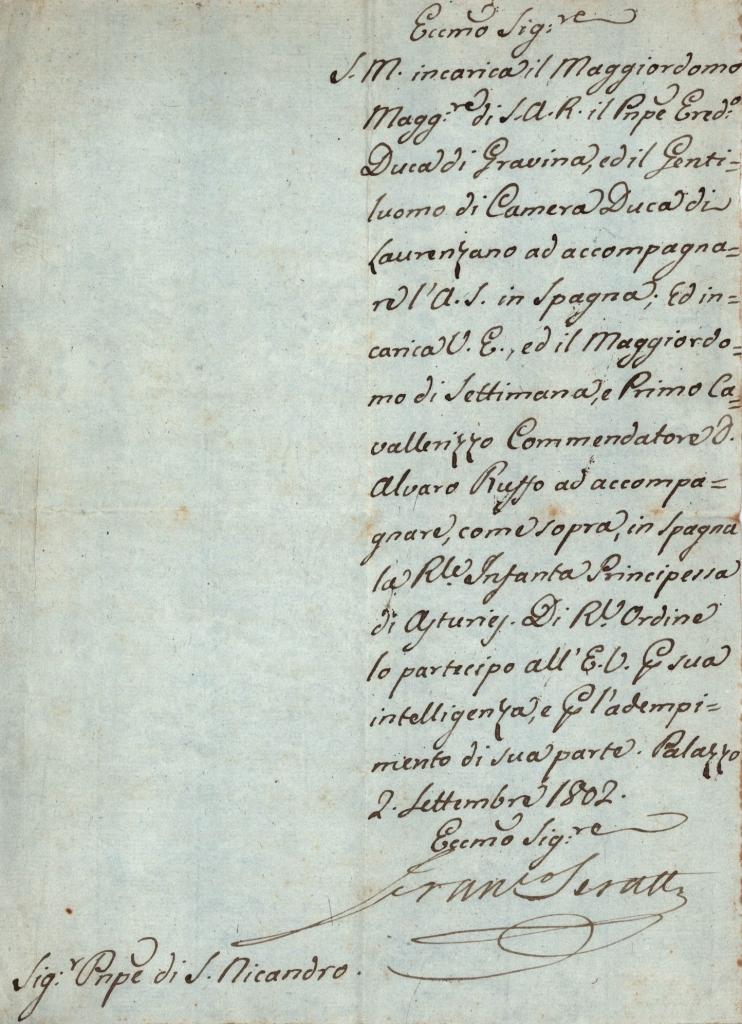 Eccmo Sig:re
S. M. incarica il Maggiordomo
Magg:re di S. A. R. il Pnpe Ered:o
Duca di Gravina, ed il Genti=
luomo di Camera Duca di
Laurenzano ad accompagna=
re l'A. S. in Spagna; Ed in=
carica V. E., ed il Maggiordo=
mo di Settimana, e Primo Ca=
vallerizzo Commendatore D.
Alvaro Ruffo ad accompa=
gnare, come sopra, in Spagna
la Rle Infanta Principessa
di Asturies. Di Rl Ordine
lo partecipo all'E. V. p sua
intelligenza, e p l'adempi=
mento di sua parte. Palazzo
2. Settembre 1802.
Eccmo Sig:re
Franco Seratti
Sig:r Pnpe di S. Nicandro.